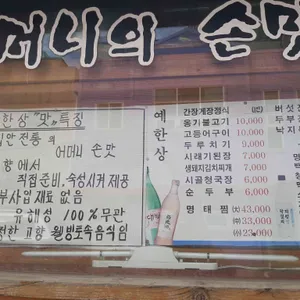 어머니의 손맛
한상 "맛" 특징
전통의
어머니 손맛
향에서
직접준비. 숙성시켜 제공
부사입재료 없음
유해성 100% 무관
고향 웰빙토속음식임
예한상
간장게장정식 10,000
옹기불고기 10,000
고등어구이 10,000
두루치기 9,000
시래기된장 7,000
생돼지김치찌개 7,000
시골청국장 6,000
순두부 6,000
명태찜 (大) 43,000
(中) 33,000
(小) 23,000
버섯
두부
낙지